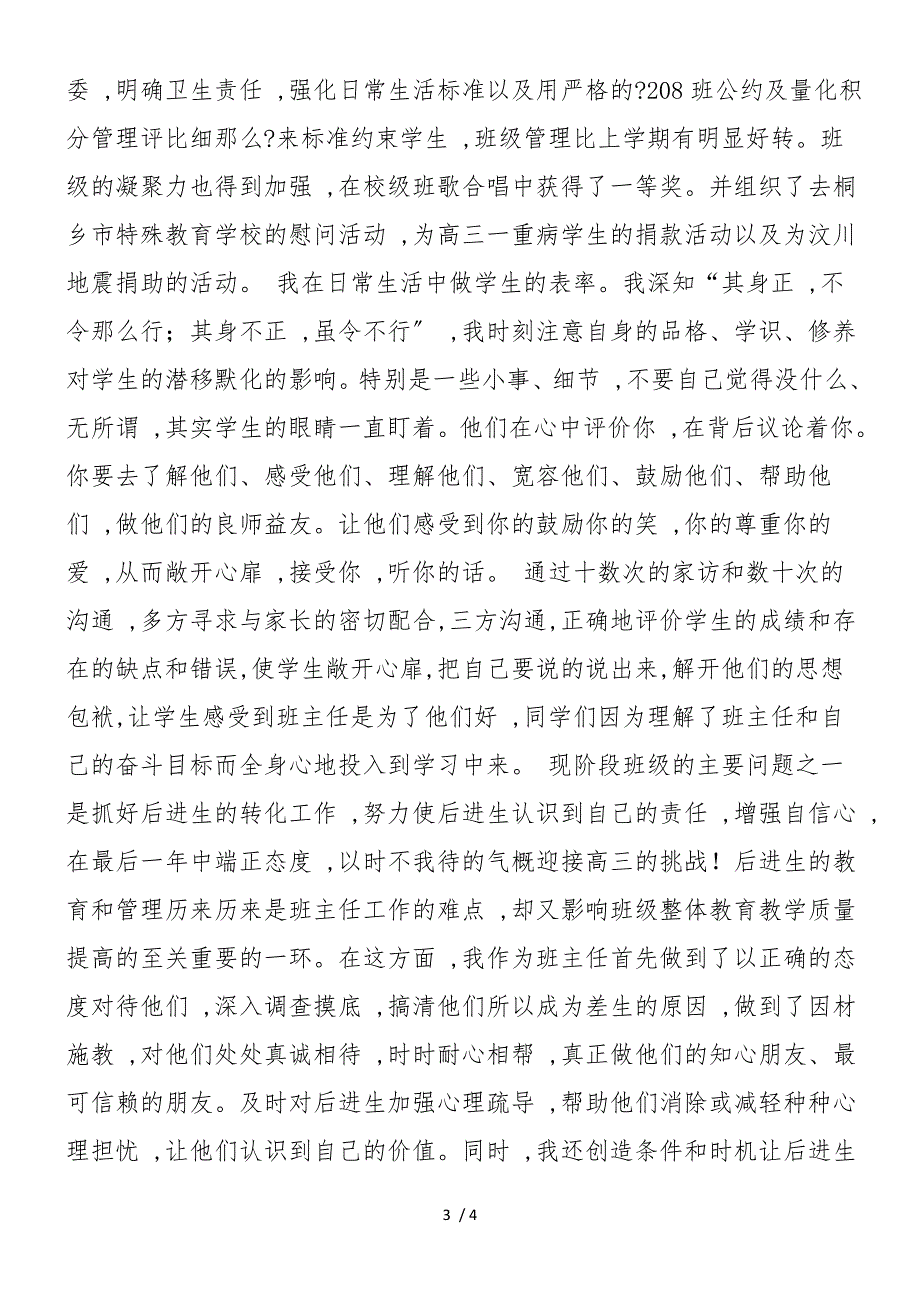 委 ,明确卫生责任 ,强化日常生活标准以及用严格的?208 班公约及量化积
分管理评比细那么?来标准约束学生 ,班级管理比上学期有明显好转。班
级的凝聚力也得到加强 ,在校级班歌合唱中获得了一等奖。并组织了去桐
乡市特殊教育学校的慰问活动 ,为高三一重病学生的捐款活动以及为汶川
地震捐助的活动。 我在日常生活中做学生的表率。我深知“其身正 ,不
令那么行；其身不正 ,虽令不行〞 ,我时刻注意自身的品格、学识、修养
对学生的潜移默化的影响。特别是一些小事、细节 ,不要自己觉得没什么、
无所谓 ,其实学生的眼睛一直盯着。他们在心中评价你 ,在背后议论着你。
你要去了解他们、感受他们、理解他们、宽容他们、鼓励他们、帮助他
们 ,做他们的良师益友。让他们感受到你的鼓励你的笑 ,你的尊重你的
爱 ,从而敞开心扉 ,接受你 ,听你的话。 通过十数次的家访和数十次的
沟通 ,多方寻求与家长的密切配合,三方沟通,正确地评价学生的成绩和存
在的缺点和错误,使学生敞开心扉,把自己要说的说出来,解开他们的思想
包袱,让学生感受到班主任是为了他们好 ,同学们因为理解了班主任和自
己的奋斗目标而全身心地投入到学习中来。 现阶段班级的主要问题之一
是抓好后进生的转化工作 ,努力使后进生认识到自己的责任 ,增强自信心 ,
在最后一年中端正态度 ,以时不我待的气概迎接高三的挑战！后进生的教
育和管理历来历来是班主任工作的难点 ,却又影响班级整体教育教学质量
提高的至关重要的一环。在这方面 ,我作为班主任首先做到了以正确的态
度对待他们 ,深入调查摸底 ,搞清他们所以成为差生的原因 ,做到了因材
施教 ,对他们处处真诚相待 ,时时耐心相帮 ,真正做他们的知心朋友、最
可信赖的朋友。及时对后进生加强心理疏导 ,帮助他们消除或减轻种种心
理担忧 ,让他们认识到自己的价值。同时 ,我还创造条件和时机让后进生
3 / 4